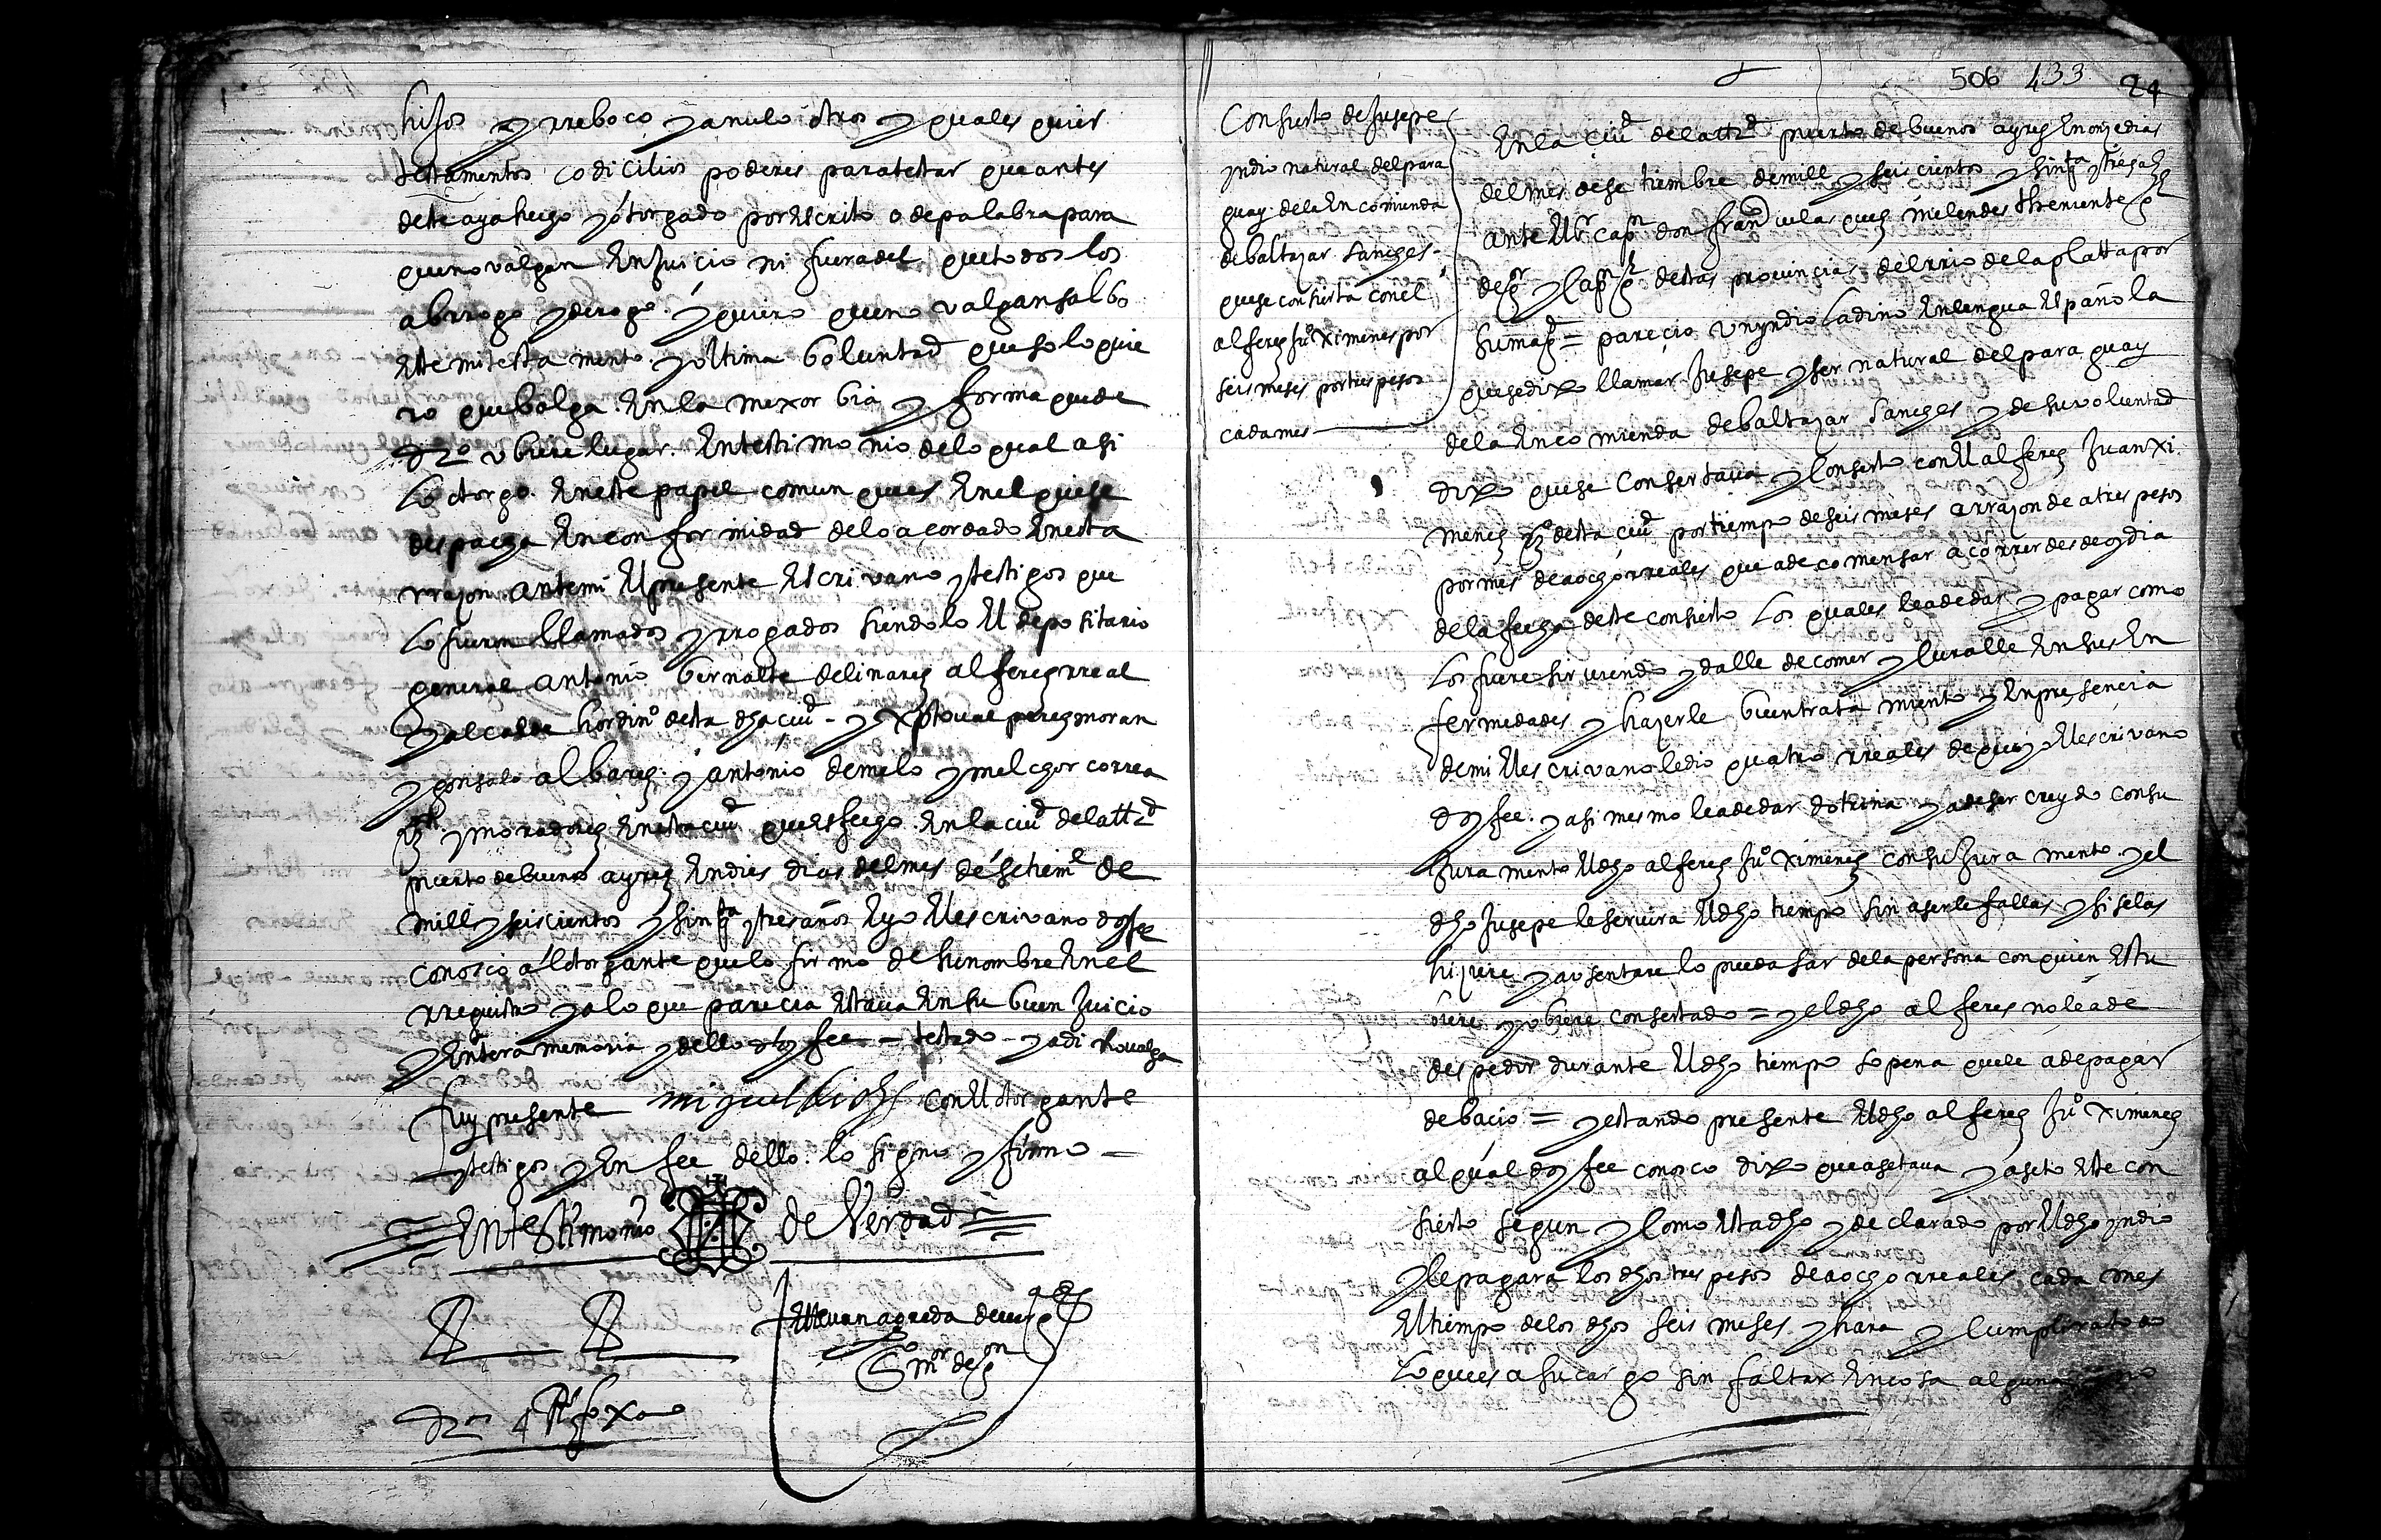 hijos y rreboco y anulo otros y quales quier
testamentos codicilios poderes para testar que antes
deste aya hecho y otorgado por escrito o de palabra para
que no valgan en juicio ni fuera del que todos los
abrrogo y derogo y quiero que no valgan salbo
este mi testamento y ultima boluntad que solo quie
ro que balga en la mexor bia y forma que de
dro ubiere lugar. en testimonio de lo qual asi
lo otorgo en este papel comun ques en el que se
despacha en conformidad de lo acordado en esta
rrazon ante mi el presente escrivano y testigos que
lo fueron llamados y rrogados siendolo el depositario
general antonio bernalte de linares alferez rreal
y alcalde hordino desta dha ciud - y xptoval perez moran
y gonsalo albarez y antonio de melo y melchor correa
y moradores en esta ciud ques fecho en la ciud de la ttd
puerto de buenos ayres en dies dias del mes de setiemе de
mill y seiscientos y sinqta y tres años e yo el escrivano doy fee
conosco al otorgante que lo firmo de su nombre en el
rregistro y a lo que parecia estava en su buen juicio
y entera memoria y dello doy fee - testado - y adi no valga
fuy presente miguel con el otorgante
y testigos y en fee dello lo signo y firmo -
En testimonio de Verdad
Juan agreda de vergara
sno mor de gon
dros 4 Rs
506 433 24
Consierto de Jusepe
yndio natural del para
guay de la encomienda
de baltazar sanches
que se consierta con el
alferez juo Ximenes por
seis meses por tres pesos
cada mes
En la ciud de la ttd puerto de buenos ayres en onze dias
del mes de setiembre de mill y seiscientos y sinqta y tres as
ante el sr capn don franco velasquez melendes theniente gl
de gor y capn gl destas provincias del rrio de la platta por
su magd = parecio un yndio ladino en lengua española
que se dixo llamar Jusepe y ser natural del paraguay
de la encomienda de baltazar sanches y de su voluntad
dixo que se consertava y conserto con el alferez Juan Xi
menez vo desta ciud por tiempo de seis meses a rrazon de a tres pesos
por mes de a ocho rreales que a de comensar a correr desde oy dia
de la fecha deste consierto los quales le a de dar y pagar como
los fuere sirviendo y dalle de comer y curalle en sus en
fermedades y hazerle buen tratamiento y en presencia
de mi el escrivano le dio quatro rreales de que yo el escrivano
doy fee. y asi mesmo le a de dar dotrina y a de ser creydo con su
juramento el dho alferez juo Ximenez con su juramento y el
dho Jusepe le servira el dho tiempo sin aserle fallas y si se las
hiziere y ausentare lo pueda sacar de la persona con quien estu
biere y ubiere consertado = y el dho alferes no le a de
despedir durante el dho tiempo so pena que le a de pagar
de bacio = y estando presente el dho alferez juo Ximenez
al qual doy fee conosco dixo que asetava y aseto este con
sierto segun y como esta dho y declarado por el dho yndio
y le pagara los dhos tres pesos de a ocho rreales cada mes
el tiempo de los dhos seis meses y hara y cumplira todo
lo ques a su cargo sin faltar en cosa alguna